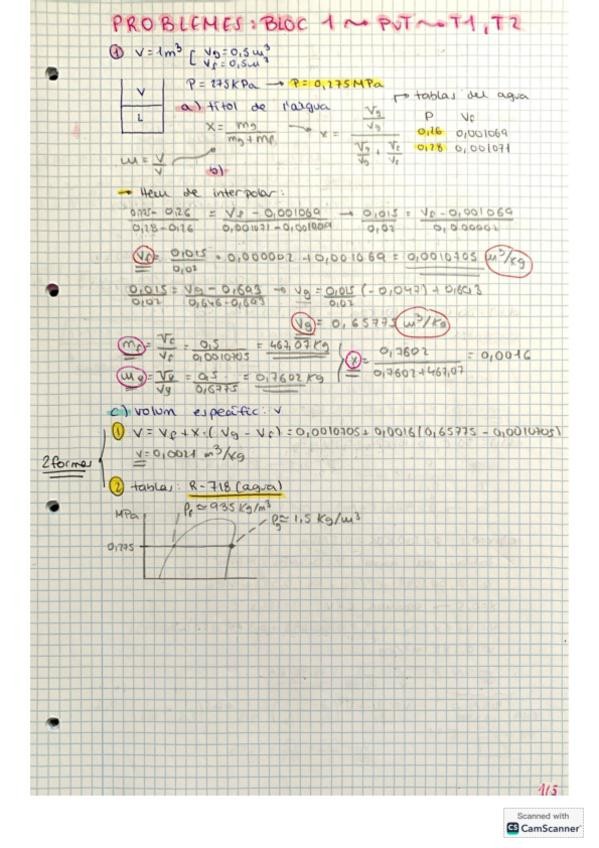 PROBLEMES: BLOC 1 ~> PVT ~> T1, T2
① V = 1m³ [ Vg = 0,5m³
Vf = 0,5m³
V
L
P = 275KPa → P = 0,275MPa
a) títol de l'aigua
x = mg / (mg + mf) → x = (Vg/vg) / (Vg/vg + Vf/vf)
→ tablas del agua
P Vf
0,26 0,001069
0,28 0,001071
m = V/v
b)
→ Hem de interpolar:
(0,275 - 0,26) / (0,28 - 0,26) = (Vf - 0,001069) / (0,001071 - 0,001069) → 0,015 / 0,02 = (Vf - 0,001069) / 0,000002
Vf = 0,015 / 0,02 · 0,000002 + 0,001069 = 0,0010705 m³/kg
0,015 / 0,02 = (Vg - 0,693) / (0,646 - 0,693) → Vg = 0,015 / 0,02 (-0,047) + 0,693
Vg = 0,65775 m³/kg
mf = Vf / vf = 0,5 / 0,0010705 = 467,07 kg
mg = Vg / vg = 0,5 / 0,6775 = 0,7602 kg
x = 0,7602 / (0,7602 + 467,07) = 0,0016
c) volum específic: v
2 formes
① V = Vf + x · (Vg - Vf) = 0,0010705 + 0,0016 (0,65775 - 0,0010705)
V = 0,0021 m³/kg
② tablas: R-718 (agua)
MPa
ρf ≈ 935 kg/m³
ρg ≈ 1,5 kg/m³
0,275
1/5
Scanned with
CS CamScanner